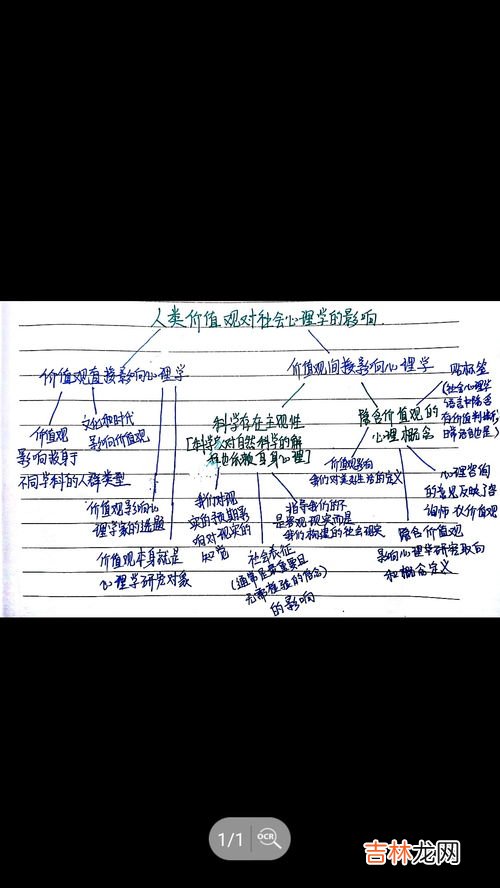 人类价值观对社会心理学的影响
价值观直接影响心理学
价值观
影响投身于
不同学科的人群类型
文化和时代
影响价值观
价值观影响心
理学家的选题
价值观本身就是
心理学研究对象
价值观间接影响心理学
科学存在主观性
[科学家对自然科学的解
我们对现
实的预期影
响对现实的
知觉
社会表征
(通常是最重要且
无需检验的信念)
的影响
指导我们的不
是客观现实而是
我们构建的社会现实
隐含价值观的
心理概念
价值观影响
我们对美好生活的定义
隐含价值观
影响心理学研究取向
和概念定义
心理咨询
的意见反映了咨
询师
价值观
贴标签
(社会心理学
语言中隐含
有价值判断
日常语言也是)
1/1
OCR
吉林龙网